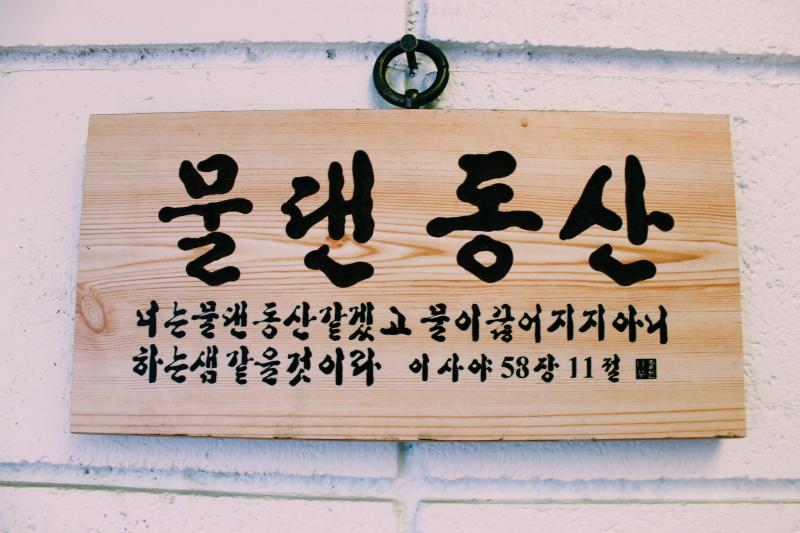 물댄동산
너는물댄동산같겠고 물이끊어지지아니
하는샘같을것이라 이사야 58장 11절